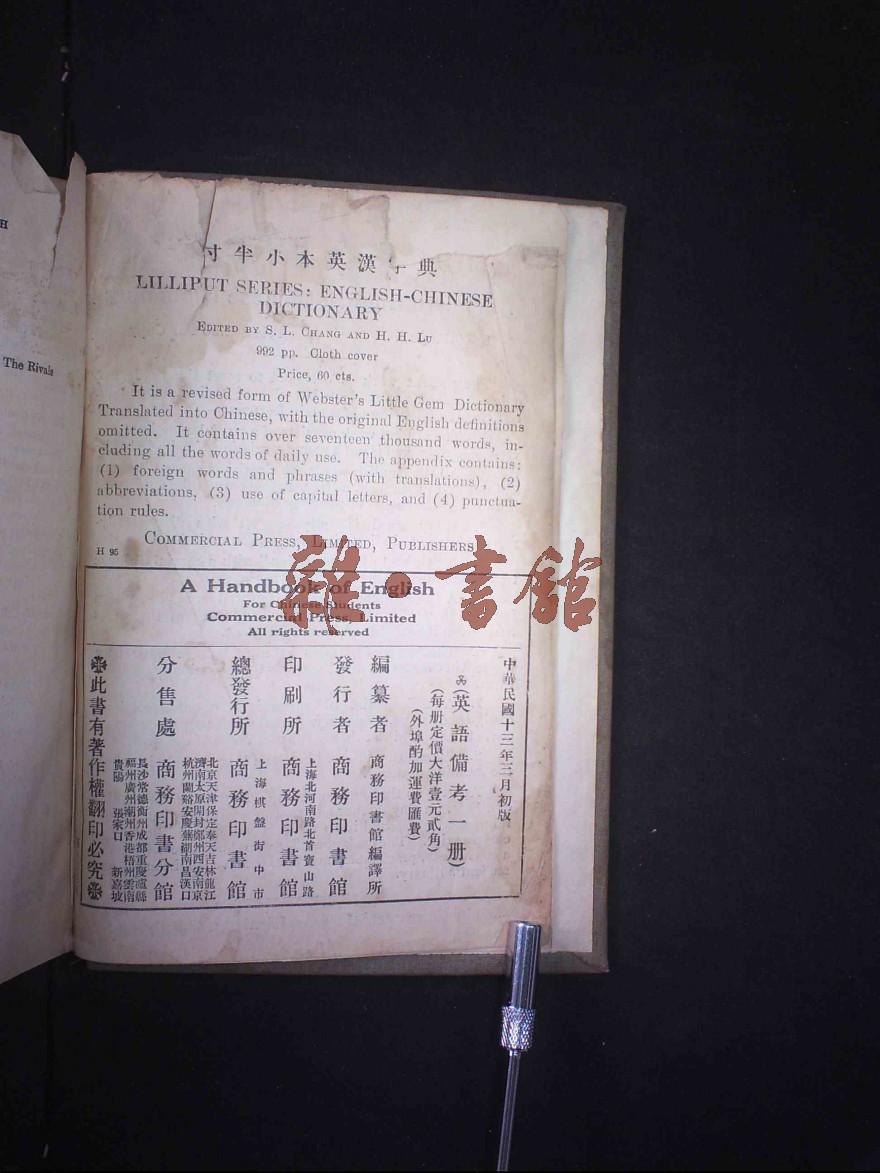 H
The Rivals
寸半小本英漢字典
LILLIPUT SERIES: ENGLISH-CHINESE
DICTIONARY
EDITED BY S. L. CHANG AND H. H. LU
992 pp. Cloth cover
Price, 60 cts.
It is a revised form of Webster's Little Gem Dictionary
Translated into Chinese, with the original English definitions
omitted. It contains over seventeen thousand words, in-
cluding all the words of daily use. The appendix contains:
(1) foreign words and phrases (with translations), (2)
abbreviations, (3) use of capital letters, and (4) punctua-
tion rules.
COMMERCIAL PRESS, LIMITED, PUBLISHERS
H 95
雜·書館
A Handbook of English
For Chinese Students
Commercial Press, Limited
All rights reserved
中華民國十三年三月初版
(英語備考一册)
(每册定價大洋壹元貳角)
(外埠酌加運費匯費)
編纂者 商務印書館編譯所
發行者 商務印書館
印刷所 上海北河南路北首寶山路
商務印書館
總發行所 上海棋盤街中市
商務印書館
分售處 商務印書分館
北京天津保定奉天吉林龍江
濟南太原開封鄭州西安南京
杭州蘭谿安慶蕪湖南昌漢口
長沙常德衡州成都重慶瀘縣
福州廣州潮州香港梧州雲南
貴陽 張家口 新嘉坡
此書有著作權翻印必究